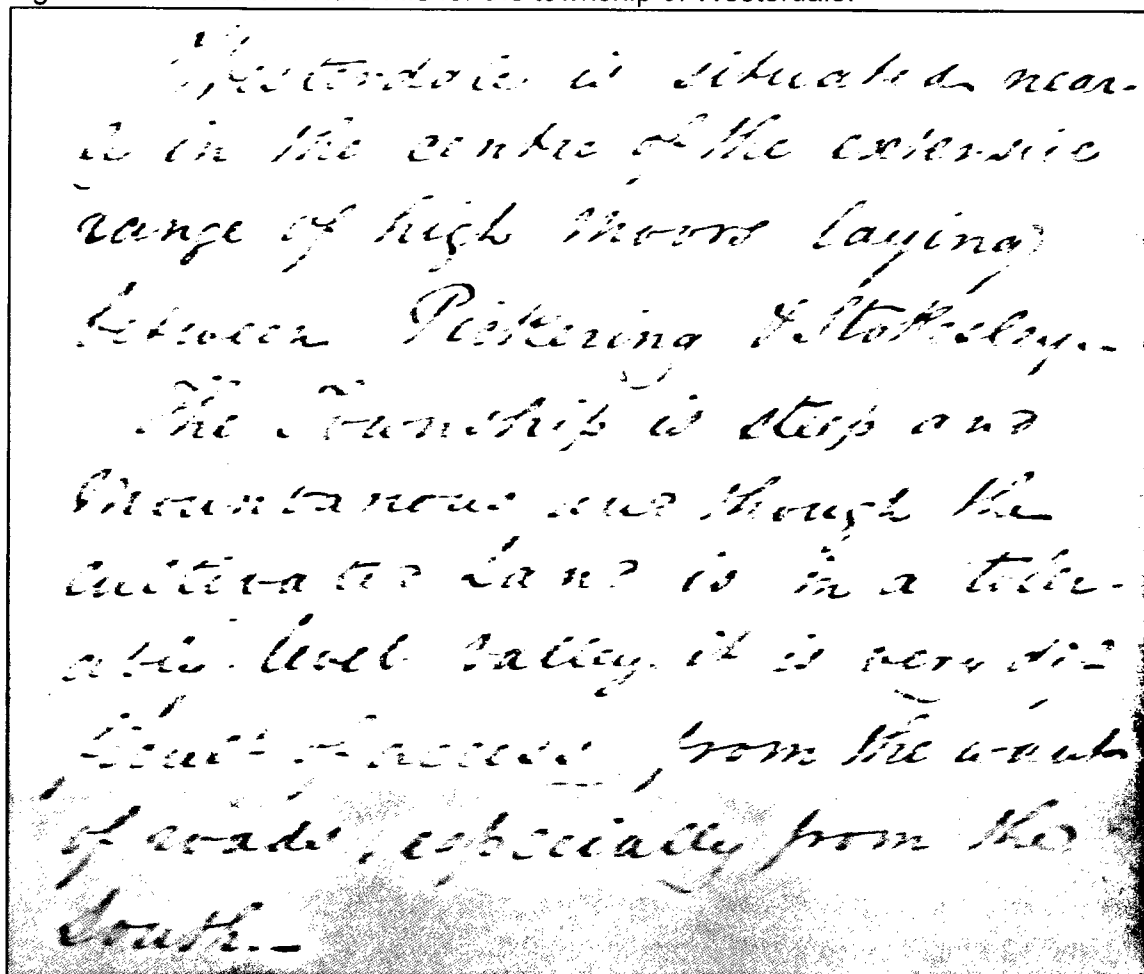 the township of Westerdale.
Westerdale is situated near-
ly in the centre of the extensive
range of high Moors laying
between Pickering & Stokesley.-
The Township is steep and
Mountanous and though the
cultivated Land is in a toler-
able level Valley it is very dif
ficult of access from the want
of roads, especially from the
South.-